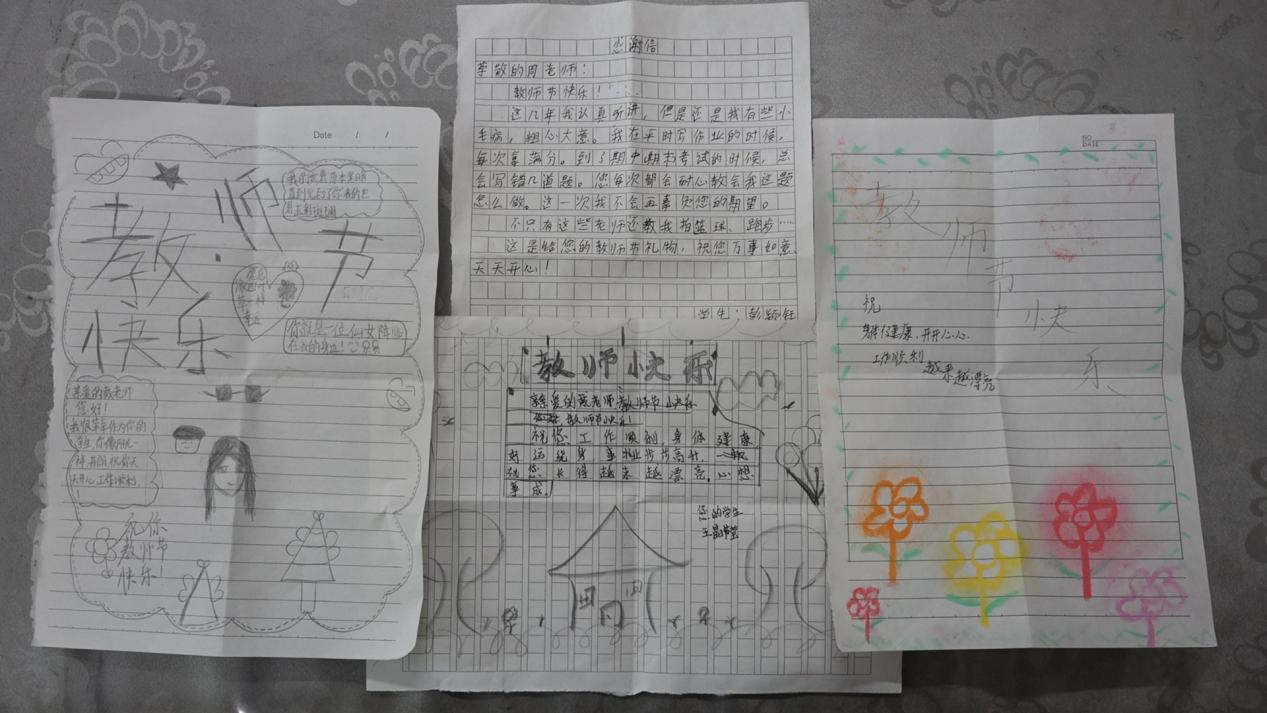 Date / /
教师节
快乐
你就是一位仙女降临
在我的身边!
亲爱的戴老师
您好!
我很荣幸作为你的
天开心,工作顺利
!
祝你
教师节
快乐!
感谢信
孝敬的周老师:
教师节快乐!
这几年我认真听讲,但是还是我有些小
毛病,粗心大意。我在平时写作业的时候,
每次拿满分。到了期中期末考试的时候,总
会写错几道题。您每次都会耐心教会我这题
怎么做。这一次我不会再辜负您的期望。
不只有这些老师还教我拍篮球、跑步……
这是给您的教师节礼物,祝您万事如意,
天天开心!
学生:彭
教师快乐
亲爱的戴老师教师节快乐
教师节快乐!
祝您工作顺利,身体健康
好运绕身事业步步高升
祝您长得越来越漂亮。心想
事成。
您的学生
王晶
NO
DATE
教师节快乐
祝
身体健康,开开心心.
工作顺利
越来越漂亮